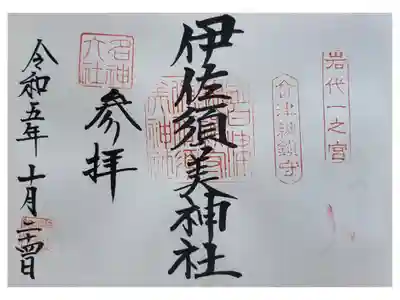 岩代一之宮
会津總鎮守
伊佐須美神社
名神大社
参拝
令和五年十月二十四日